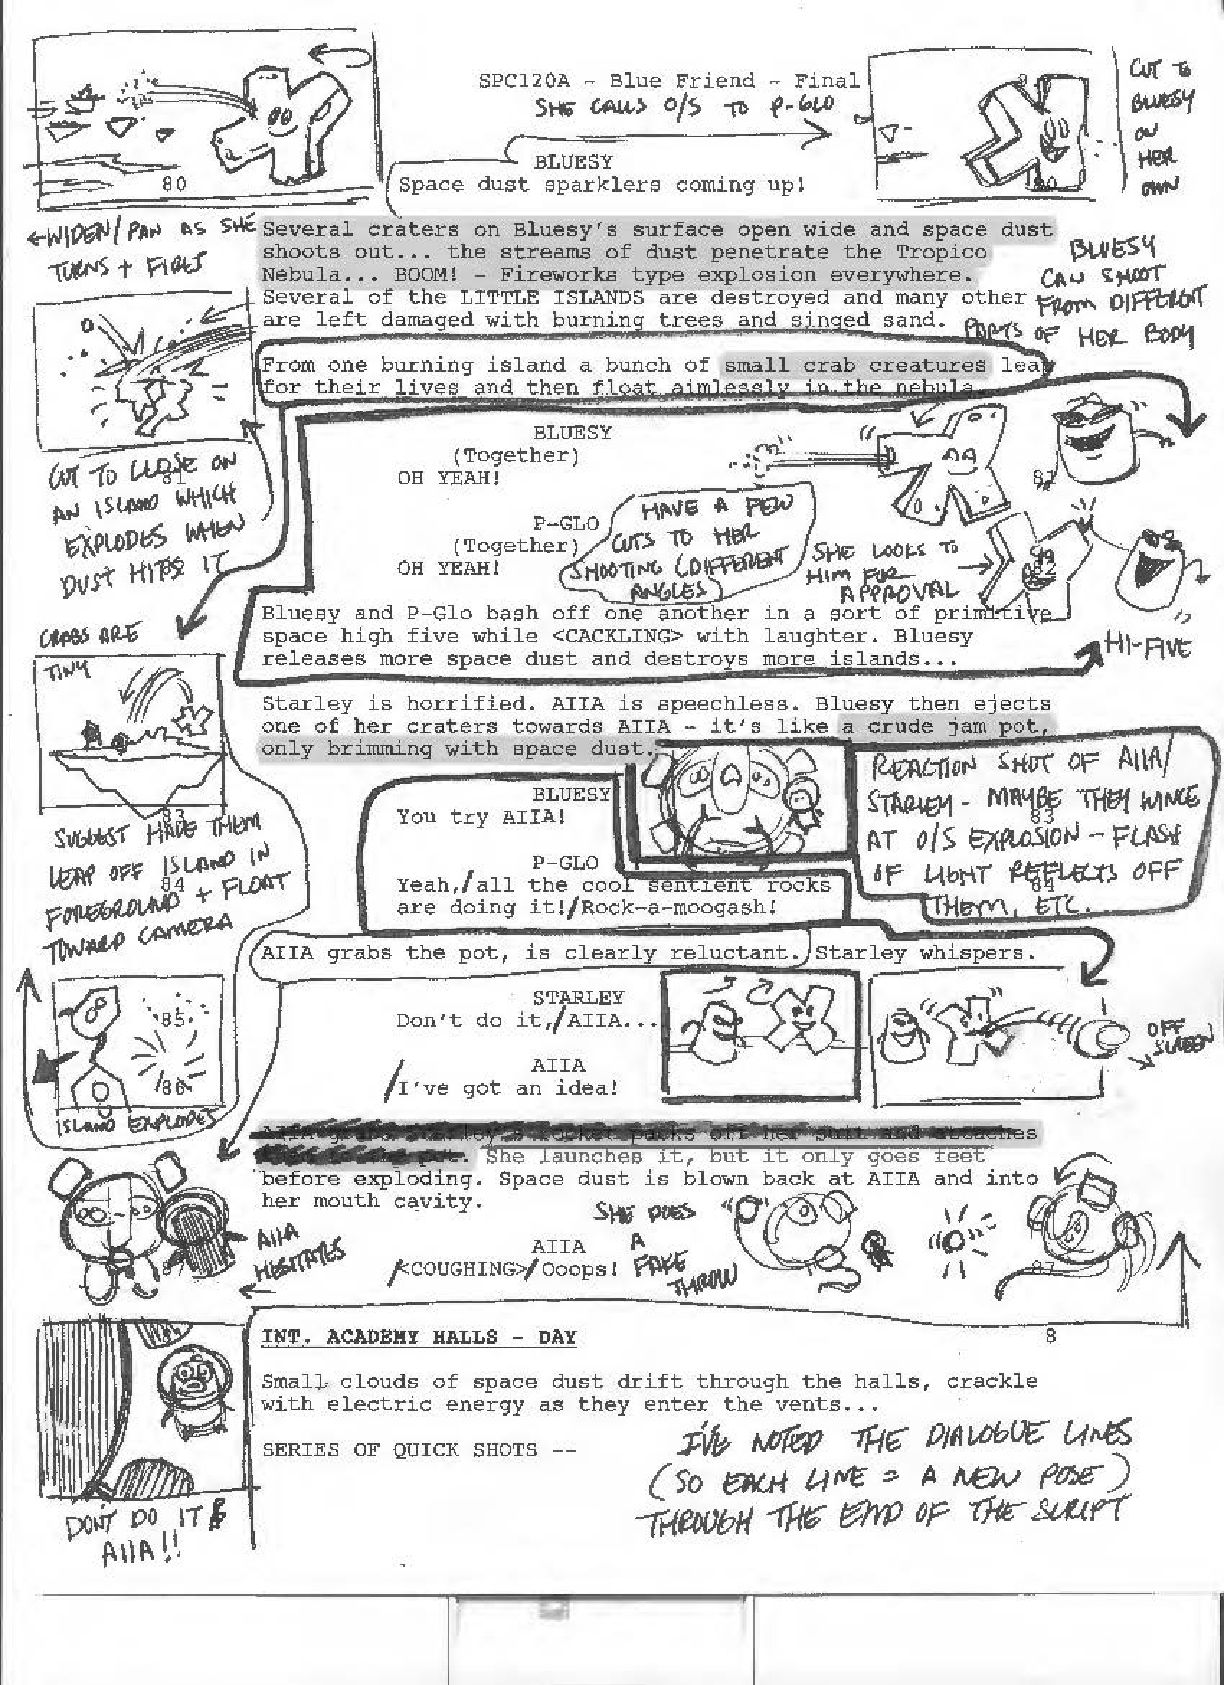 SPC120A - Blue Friend - Final
SHE CALLS O/S TO P-GLO
CUT TO
BLUESY
ON
HER
OWN
80
80
BLUESY
Space dust sparklers coming up!
←WIDEN/PAN AS SHE
TURNS + FIRES
Several craters on Bluesy's surface open wide and space dust
shoots out... the streams of dust penetrate the Tropico
Nebula... BOOM! - Fireworks type explosion everywhere.
Several of the LITTLE ISLANDS are destroyed and many other
are left damaged with burning trees and singed sand.
BLUESY
CAN SHOOT
FROM DIFFERENT
PARTS OF HER BODY
From one burning island a bunch of small crab creatures leap
for their lives and then float aimlessly in the nebula
CUT TO CLOSE ON
81
AN ISLAND WHICH
EXPLODES WHEN
DUST HITS IT
BLUESY
(Together)
OH YEAH!
P-GLO
(Together)
OH YEAH!
HAVE A FEW
CUTS TO HER
SHOOTING (DIFFERENT
ANGLES)
SHE LOOKS TO
HIM FOR
APPROVAL
82
HI-FIVE
Bluesy and P-Glo bash off one another in a sort of primitive
space high five while <CACKLING> with laughter. Bluesy
releases more space dust and destroys more islands...
CRABS ARE
TINY
Starley is horrified. AIIA is speechless. Bluesy then ejects
one of her craters towards AIIA - it's like a crude jam pot,
only brimming with space dust.
83
SUGGEST HAVE THEM
LEAP OFF ISLAND IN
84
FOREGROUND + FLOAT
TOWARD CAMERA
BLUESY
You try AIIA!
P-GLO
Yeah,/all the cool sentient rocks
are doing it!/Rock-a-moogash!
REACTION SHOT OF AIIA/
STARLEY - MAYBE THEY WINCE
83
AT O/S EXPLOSION - FLASH
OF LIGHT REFLECTS OFF
84
THEM, ETC.
AIIA grabs the pot, is clearly reluctant. Starley whispers.
STARLEY
Don't do it,/AIIA...
AIIA
/I've got an idea!
85
86
ISLAND EXPLODES
OFF
SCREEN
AIIA grabs Starley's rocket packs off her suit and attaches
She launches it, but it only goes feet
before exploding. Space dust is blown back at AIIA and into
her mouth cavity.
AIIA
/<COUGHING>/Ooops!
AIIA
HESITATES
SHE DOES
A
FAKE
THROW
87
87
INT. ACADEMY HALLS - DAY
8
Small clouds of space dust drift through the halls, crackle
with electric energy as they enter the vents...
SERIES OF QUICK SHOTS --
DON'T DO IT
AIIA!!
I'VE NOTED THE DIALOGUE LINES
(SO EACH LINE = A NEW POSE)
THROUGH THE END OF THE SCRIPT